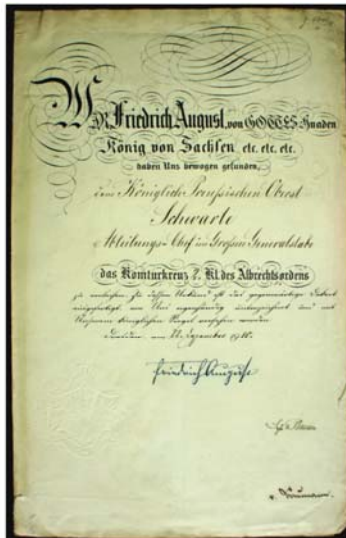 WIR Friedrich August, von GOTTES Gnaden
König von Sachsen etc. etc. etc.
haben Uns bewogen gefunden,
dem Königlich Preußischen Oberst
Schwarte
Abteilungs-Chef im Großen Generalstabe
das Komturkreuz 2. Kl. des Albrechtsordens
zu verleihen. Zu dessen Urkund ist das gegenwärtige Dekret
ausgefertigt, von Uns eigenhändig unterzeichnet und mit
Unserem Königlichen Siegel versehen worden.
Dresden, am Dezember
Friedrich August